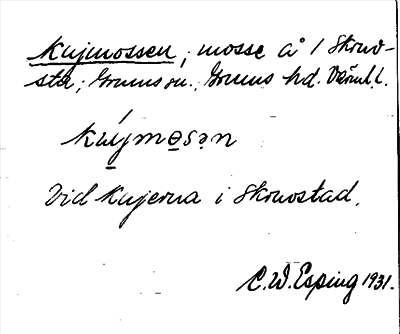 Kujmossen, mosse å 1 Skruv-
sta; Grums sn., Grums hd. Värml.l.
kúy̠mo̠sən
Vid Kujerna i Skruvstad.
C.W. Esping 1931.